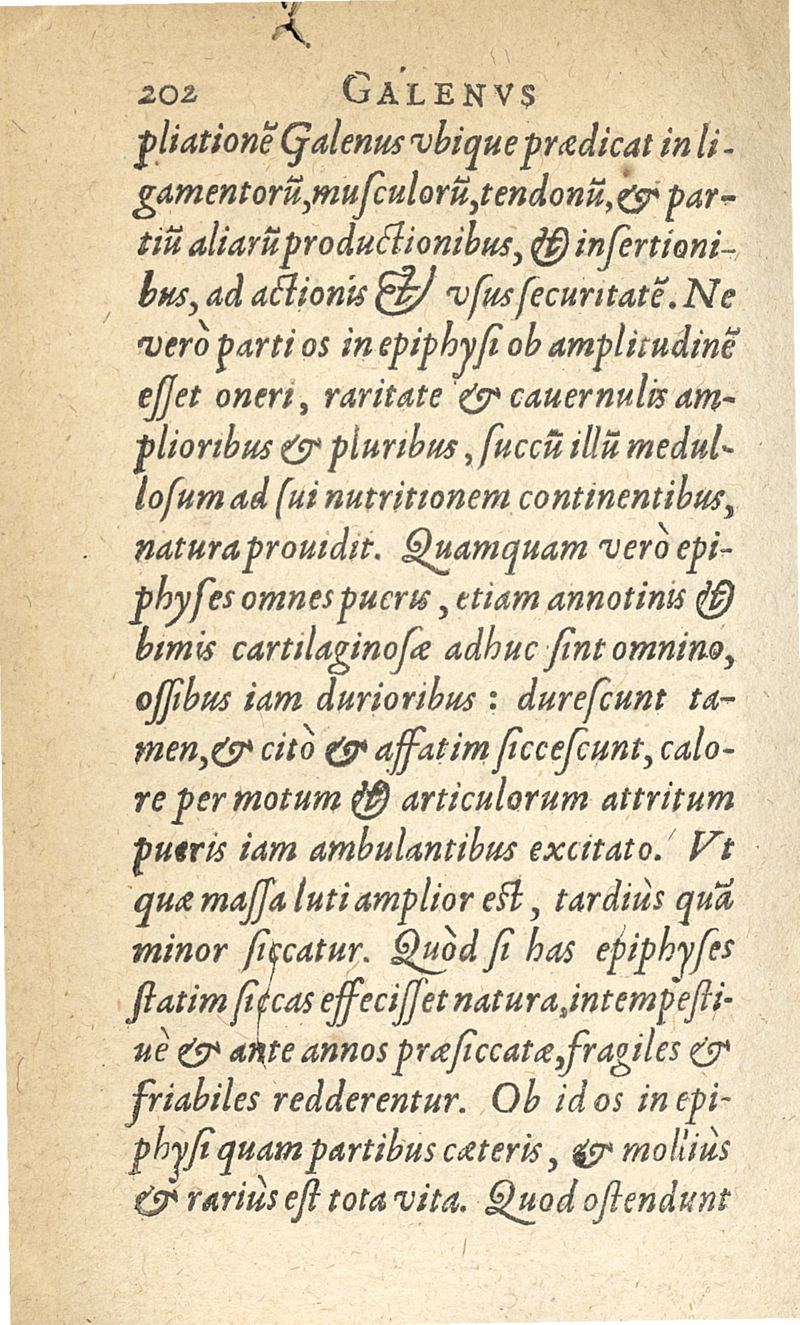 202 GALENVS
pliationē Galenus vbique prædicat in li-
gamentorū, muſculorū, tendonū, & par-
tiū aliarū productionibus, & inſertioni-
bus, ad actionis & vſus ſecuritatē. Ne
verò parti os in epiphyſi ob amplitudinē
eſſet oneri, raritate & cauernulis am-
plioribus & pluribus, ſuccū illū medul-
loſum ad ſui nutritionem continentibus,
natura prouidit. Quamquam verò epi-
phyſes omnes pueris, etiam annotinis &
bimis cartilaginoſæ adhuc ſint omnino,
oſſibus iam durioribus : dureſcunt ta-
men, & citò & affatim ſicceſcunt, calo-
re per motum & articulorum attritum
pueris iam ambulantibus excitato. Vt
quæ maſſa luti amplior est, tardiùs quā
minor ſiccatur. Quòd ſi has epiphyſes
ſtatim ſiccas effeciſſet natura, intempeſti-
uè & ante annos præſiccatæ, fragiles &
friabiles redderentur. Ob id os in epi-
phyſi quam partibus cæteris, & molliùs
& rariùs eſt tota vita. Quod oſtendunt